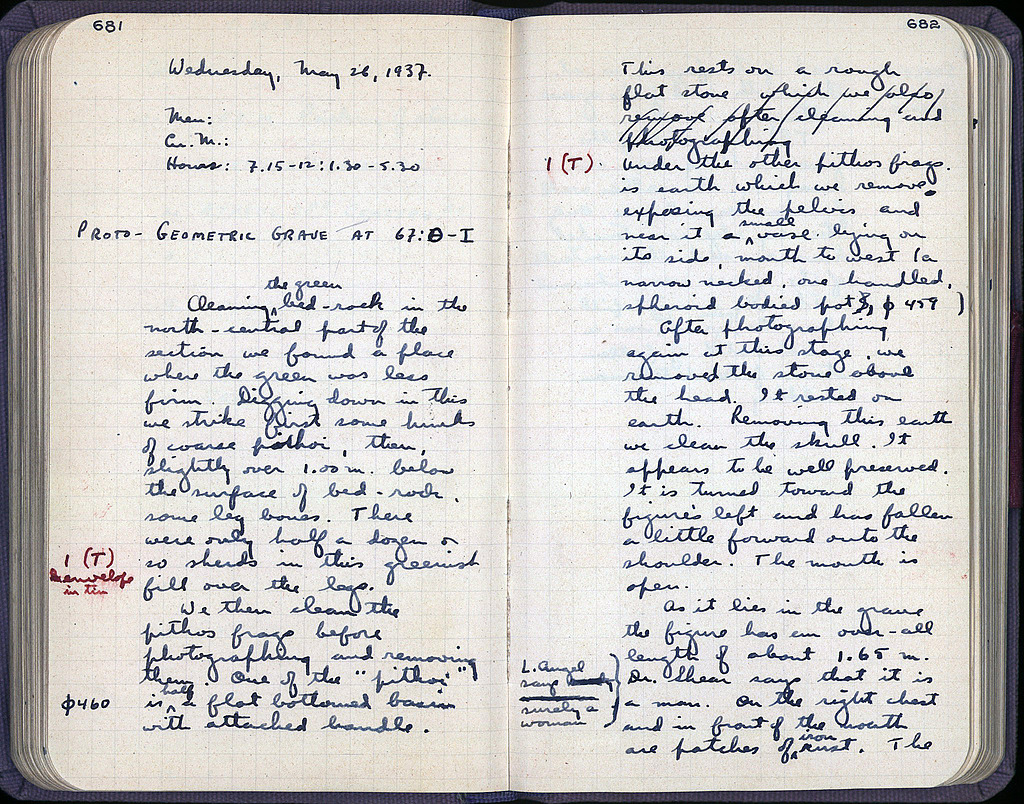 681
Wednesday, May 26, 1937.
Men:
Cu. M.:
Hours: 7.15-12:1.30-5.30
PROTO-GEOMETRIC GRAVE AT 67:Θ-I
the green
Cleaning bed-rock in the
north-central part of the
section we found a place
where the green was less
firm. Digging down in this
we strike first some hunks
of coarse pithoi, then,
slightly over 1.00 m. below
the surface of bed-rock,
some leg bones. There
were only half a dozen or
so sherds in this greenish
1 (T)
envelope
in tin
fill over the legs.
We then clean the
pithos frags before
photographing and removing
them. One of the "pithoi"
half
φ460
is a flat bottomed basin
with attached handle.
682
This rests on a rough
flat stone which we also
remove after cleaning and
photographing
1 (T).
Under the other pithos frags.
is earth which we remove
exposing the pelvis and
small
near it a vase lying on
its side, mouth to west (a
narrow necked, one handled,
spheroid bodied pot, φ 459)
After photographing
again at this stage, we
removed the stone above
the head. It rested on
earth. Removing this earth
we clean the skull. It
appears to be well preserved.
It is turned toward the
figure's left and has fallen
a little forward onto the
shoulder. The mouth is
open.
As it lies in the grave
the figure has an over-all
length of about 1.65 m.
L. Angel
says
surely a
woman
Dr. Shear says that it is
a man. On the right chest
and in front of the mouth
iron
are patches of rust. The